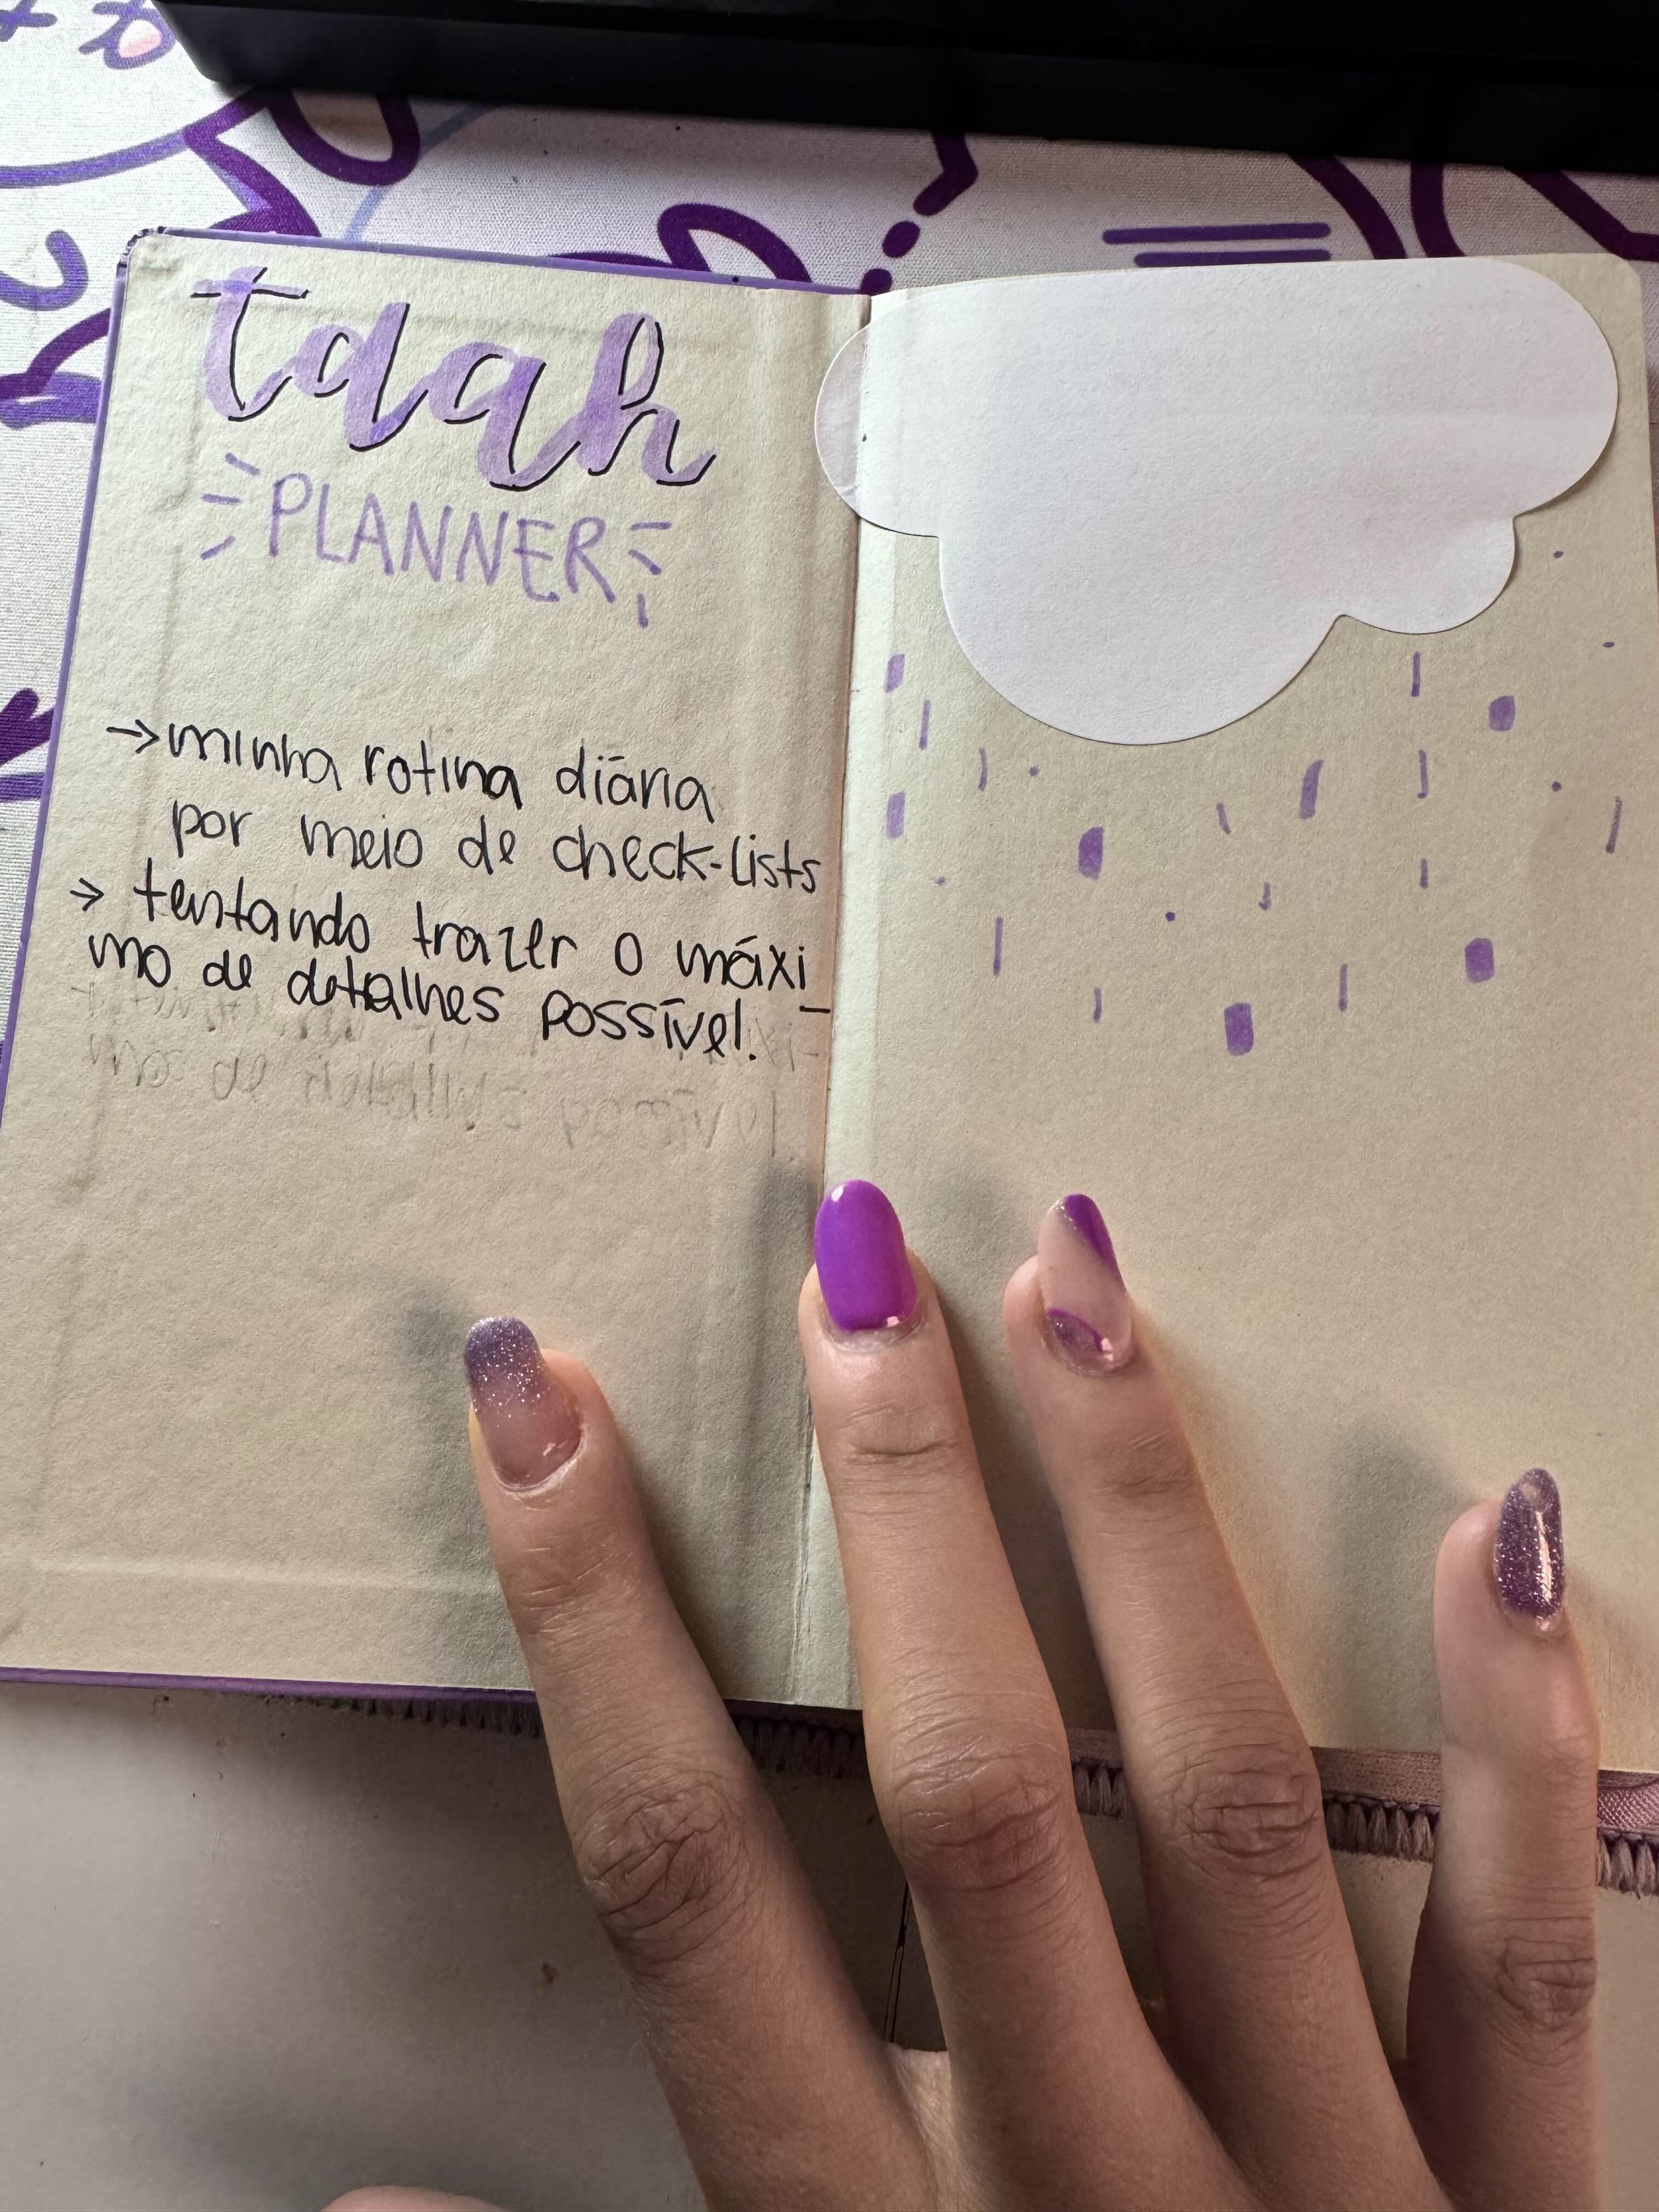 tdah
PLANNER
→ minha rotina diária
por meio de check-lists
→ tentando trazer o máxi-
mo de detalhes possível.